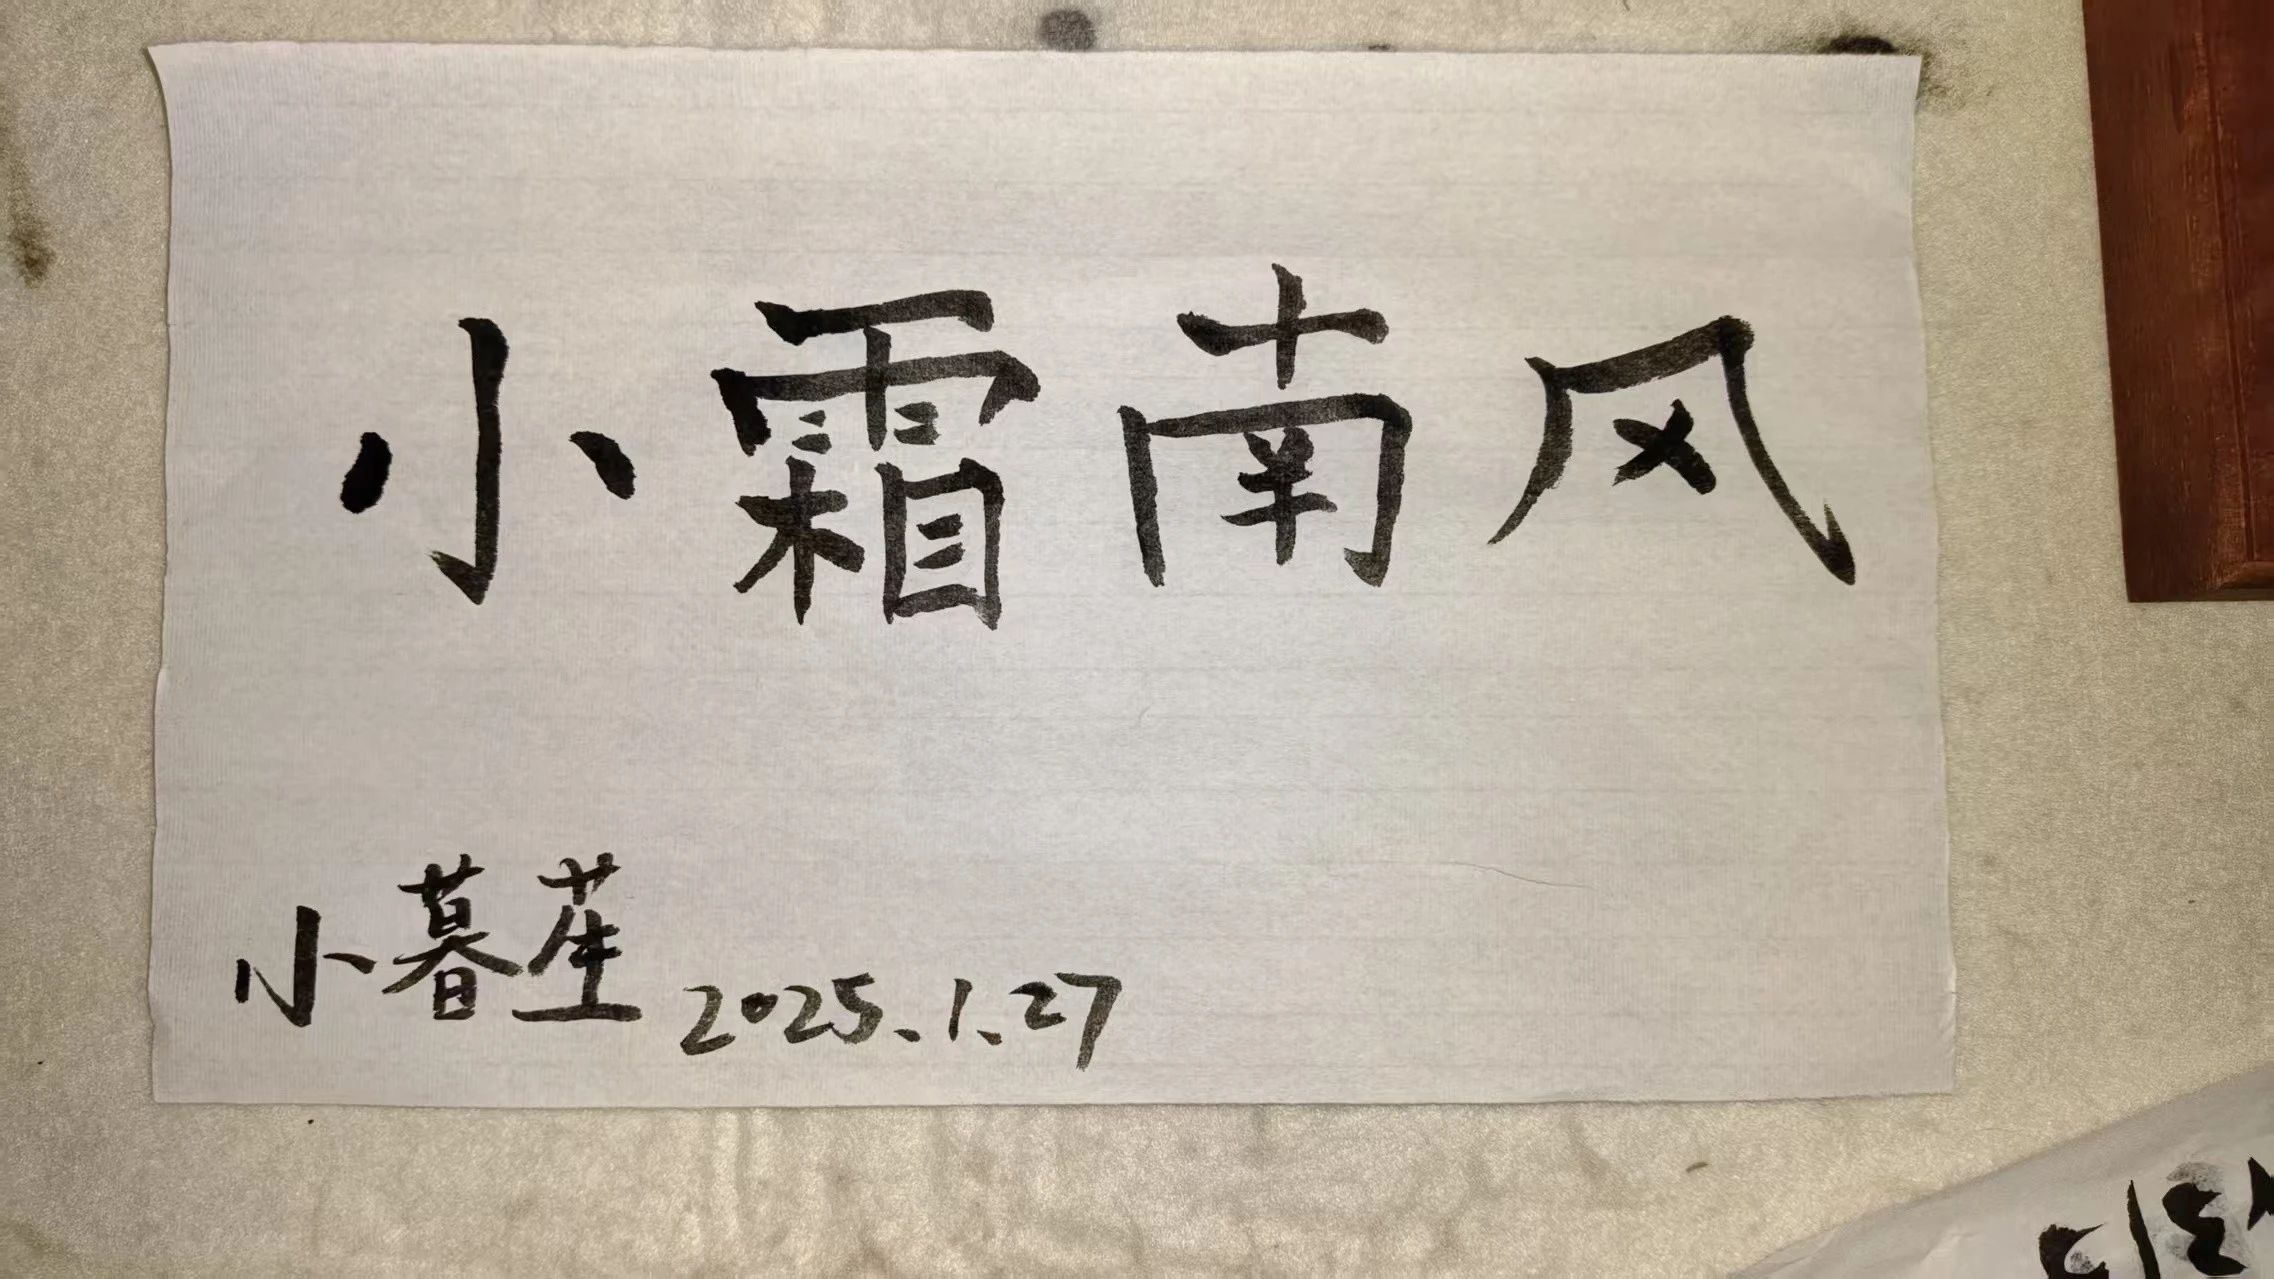 小霜南风
小暮茥 2025.1.27